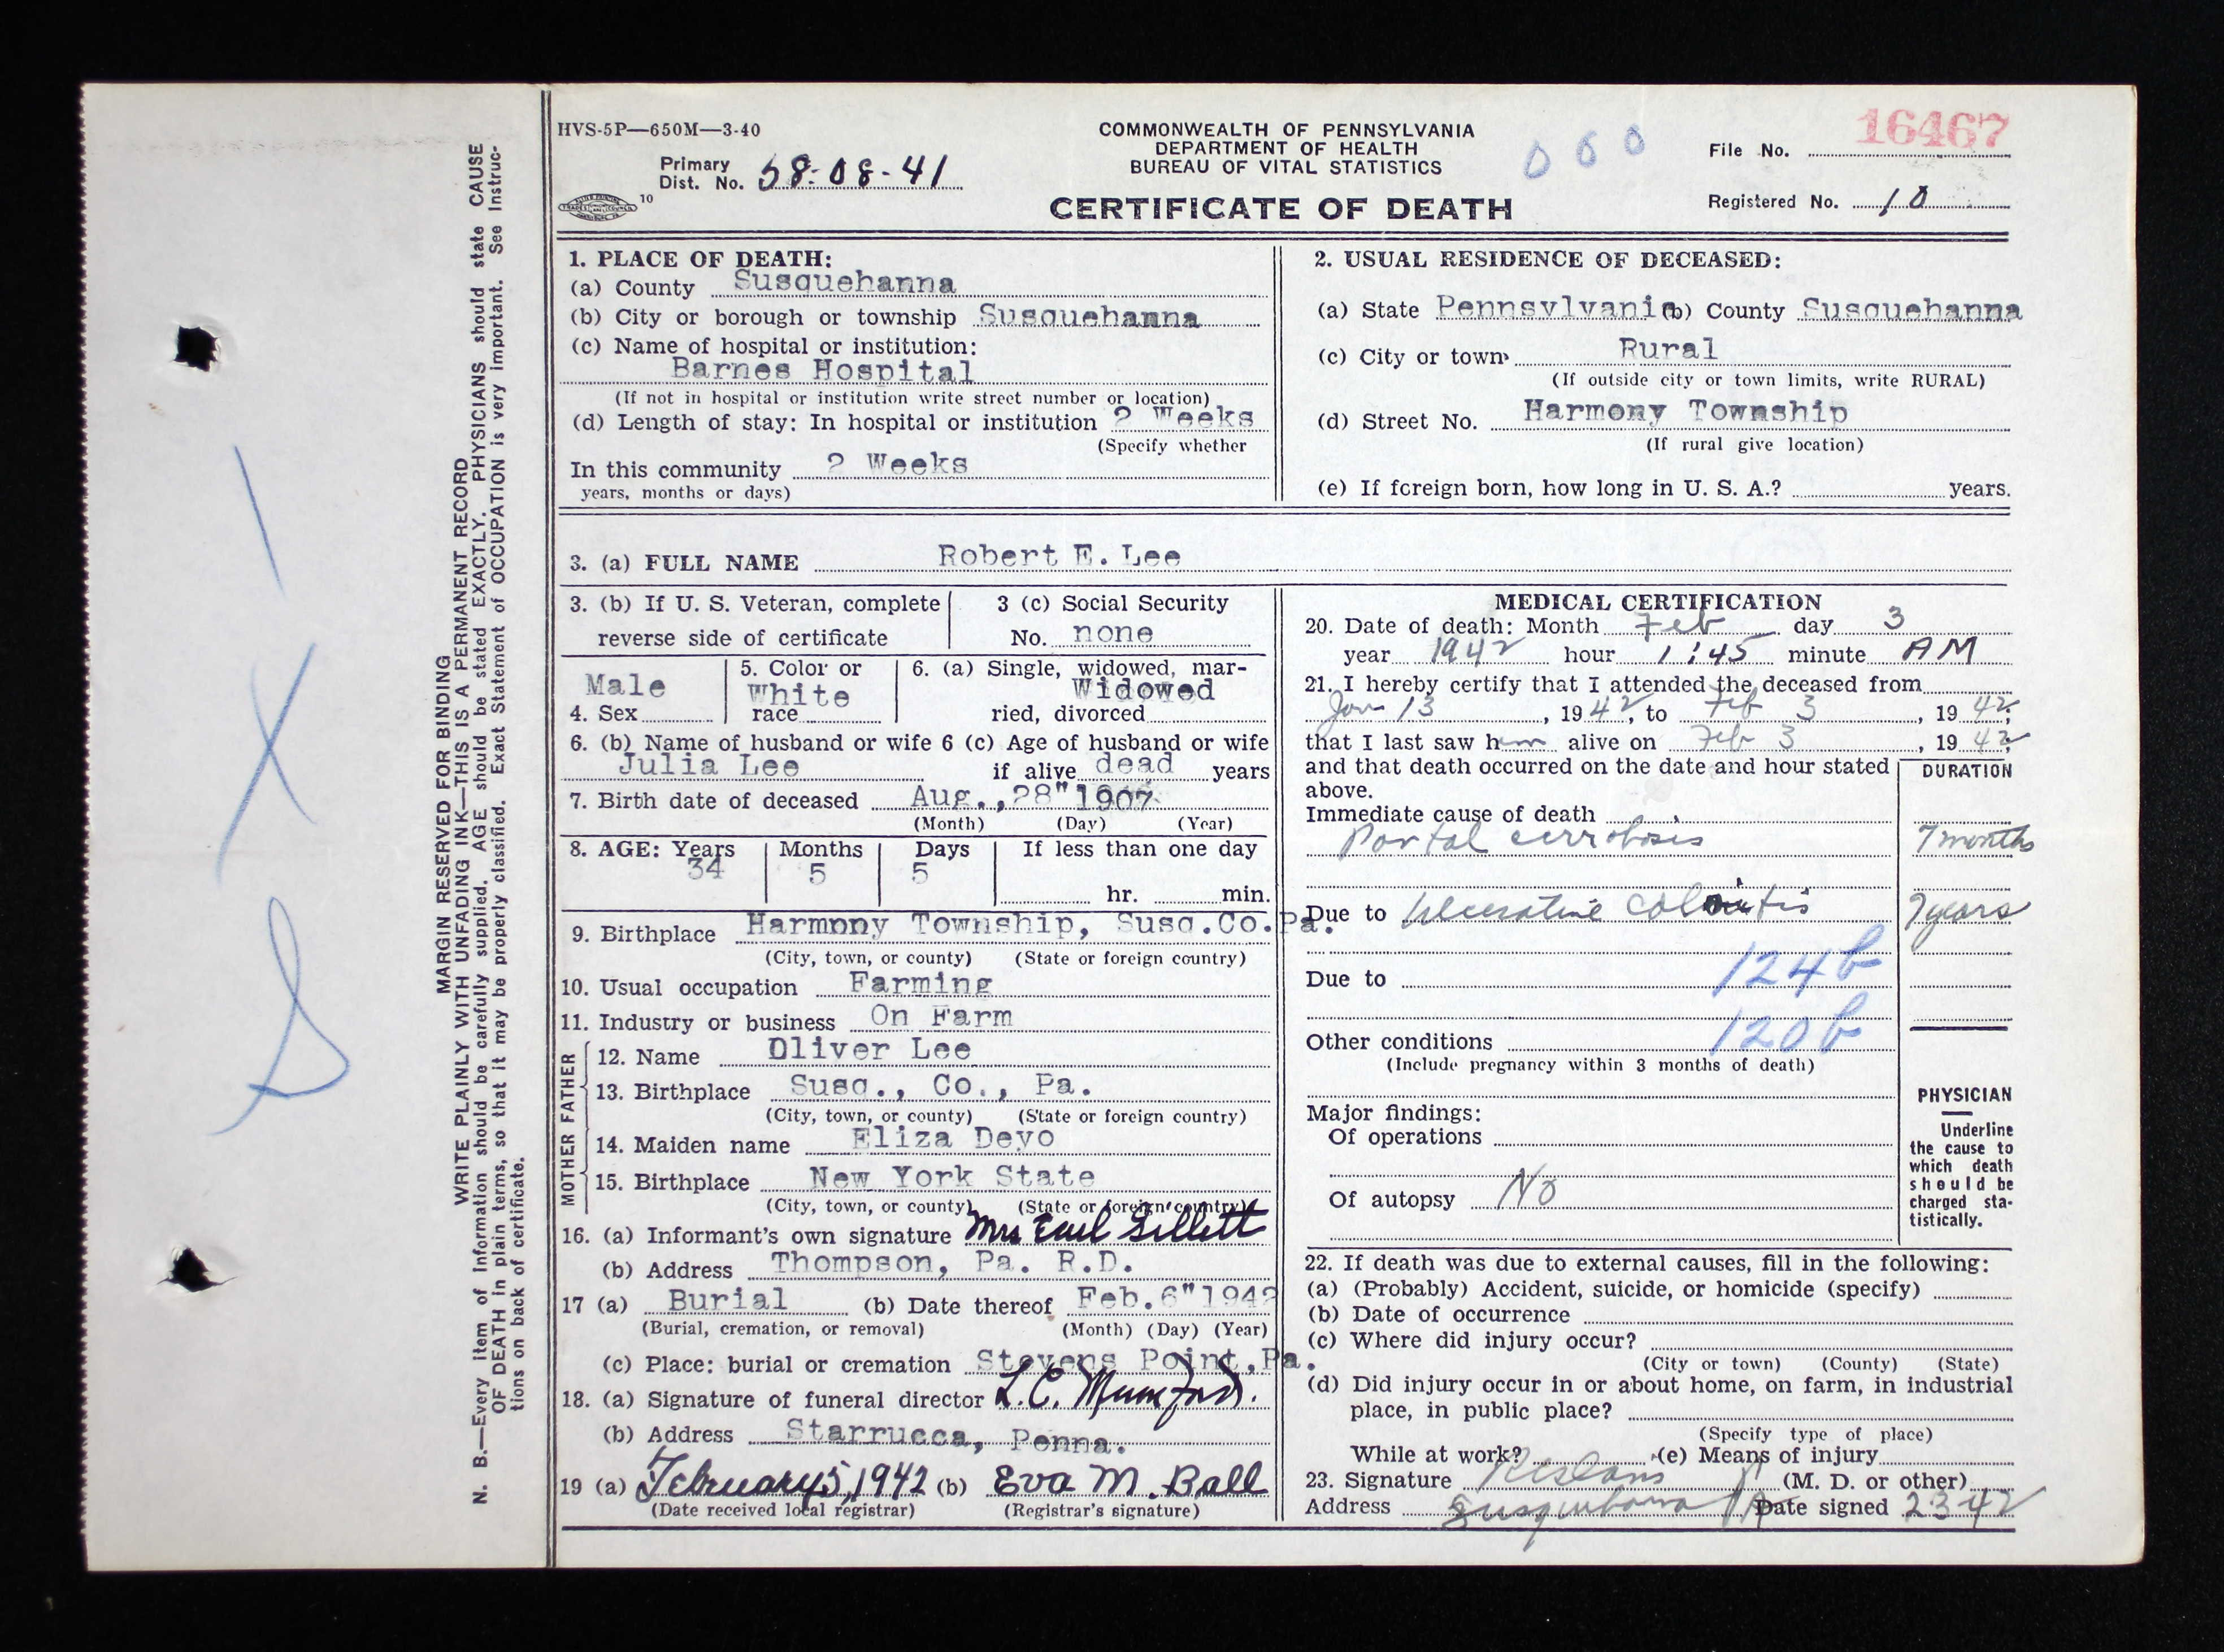 HVS-5P—650M—3-40
COMMONWEALTH OF PENNSYLVANIA
DEPARTMENT OF HEALTH
BUREAU OF VITAL STATISTICS
CERTIFICATE OF DEATH
Primary
Dist. No. 58-08-41
10
000
16467
File No.
Registered No. 10
MARGIN RESERVED FOR BINDING
WRITE PLAINLY WITH UNFADING INK—THIS IS A PERMANENT RECORD
N. B.—Every item of information should be carefully supplied. AGE should be stated EXACTLY. PHYSICIANS should state CAUSE
OF DEATH in plain terms, so that it may be properly classified. Exact Statement of OCCUPATION is very important. See Instruc-
tions on back of certificate.
1. PLACE OF DEATH:
(a) County Susquehanna
(b) City or borough or township Susquehanna
(c) Name of hospital or institution:
Barnes Hospital
(If not in hospital or institution write street number or location)
(d) Length of stay: In hospital or institution 2 Weeks
(Specify whether
In this community 2 Weeks
years, months or days)
2. USUAL RESIDENCE OF DECEASED:
(a) State Pennsylvania (b) County Susquehanna
(c) City or town Rural
(If outside city or town limits, write RURAL)
(d) Street No. Harmony Township
(If rural give location)
(e) If foreign born, how long in U. S. A.? years.
3. (a) FULL NAME Robert E. Lee
3. (b) If U. S. Veteran, complete
reverse side of certificate
3 (c) Social Security
No. none
Male
4. Sex
5. Color or
White
race
6. (a) Single, widowed, mar-
Widowed
ried, divorced
6. (b) Name of husband or wife
Julia Lee
6 (c) Age of husband or wife
if alive dead years
7. Birth date of deceased Aug., 28" 1907
(Month) (Day) (Year)
8. AGE: Years Months Days If less than one day
34 5 5
hr. min.
9. Birthplace Harmony Township, Susq.Co.Pa.
(City, town, or county) (State or foreign country)
10. Usual occupation Farming
11. Industry or business On Farm
FATHER
12. Name Oliver Lee
13. Birthplace Susq., Co., Pa.
(City, town, or county) (State or foreign country)
MOTHER
14. Maiden name Eliza Deyo
15. Birthplace New York State
(City, town, or county) (State or foreign country)
16. (a) Informant's own signature Mrs Earl Gillett
(b) Address Thompson, Pa. R.D.
17 (a) Burial (b) Date thereof Feb.6"1942
(Burial, cremation, or removal) (Month) (Day) (Year)
(c) Place: burial or cremation Stevens Point,Pa.
18. (a) Signature of funeral director L. C. Mumford.
(b) Address Starrucca, Penna.
19 (a) February 5, 1942 (b) Eva M. Ball
(Date received local registrar) (Registrar's signature)
MEDICAL CERTIFICATION
20. Date of death: Month Feb day 3
year 1942 hour 1:45 minute AM
21. I hereby certify that I attended the deceased from
Jan 13, 1942, to Feb 3, 1942;
that I last saw him alive on Feb 3, 1942;
and that death occurred on the date and hour stated
above.
DURATION
Immediate cause of death
Portal cirrohosis 7 months
Due to Ulcerative colitis 9 years
124b
Due to
120b
Other conditions
(Include pregnancy within 3 months of death)
Major findings:
Of operations
Of autopsy No
PHYSICIAN
Underline
the cause to
which death
should be
charged sta-
tistically.
22. If death was due to external causes, fill in the following:
(a) (Probably) Accident, suicide, or homicide (specify)
(b) Date of occurrence
(c) Where did injury occur?
(City or town) (County) (State)
(d) Did injury occur in or about home, on farm, in industrial
place, in public place?
(Specify type of place)
While at work? (e) Means of injury
23. Signature (M. D. or other)
Address Susquehanna PA Date signed 2-3-42